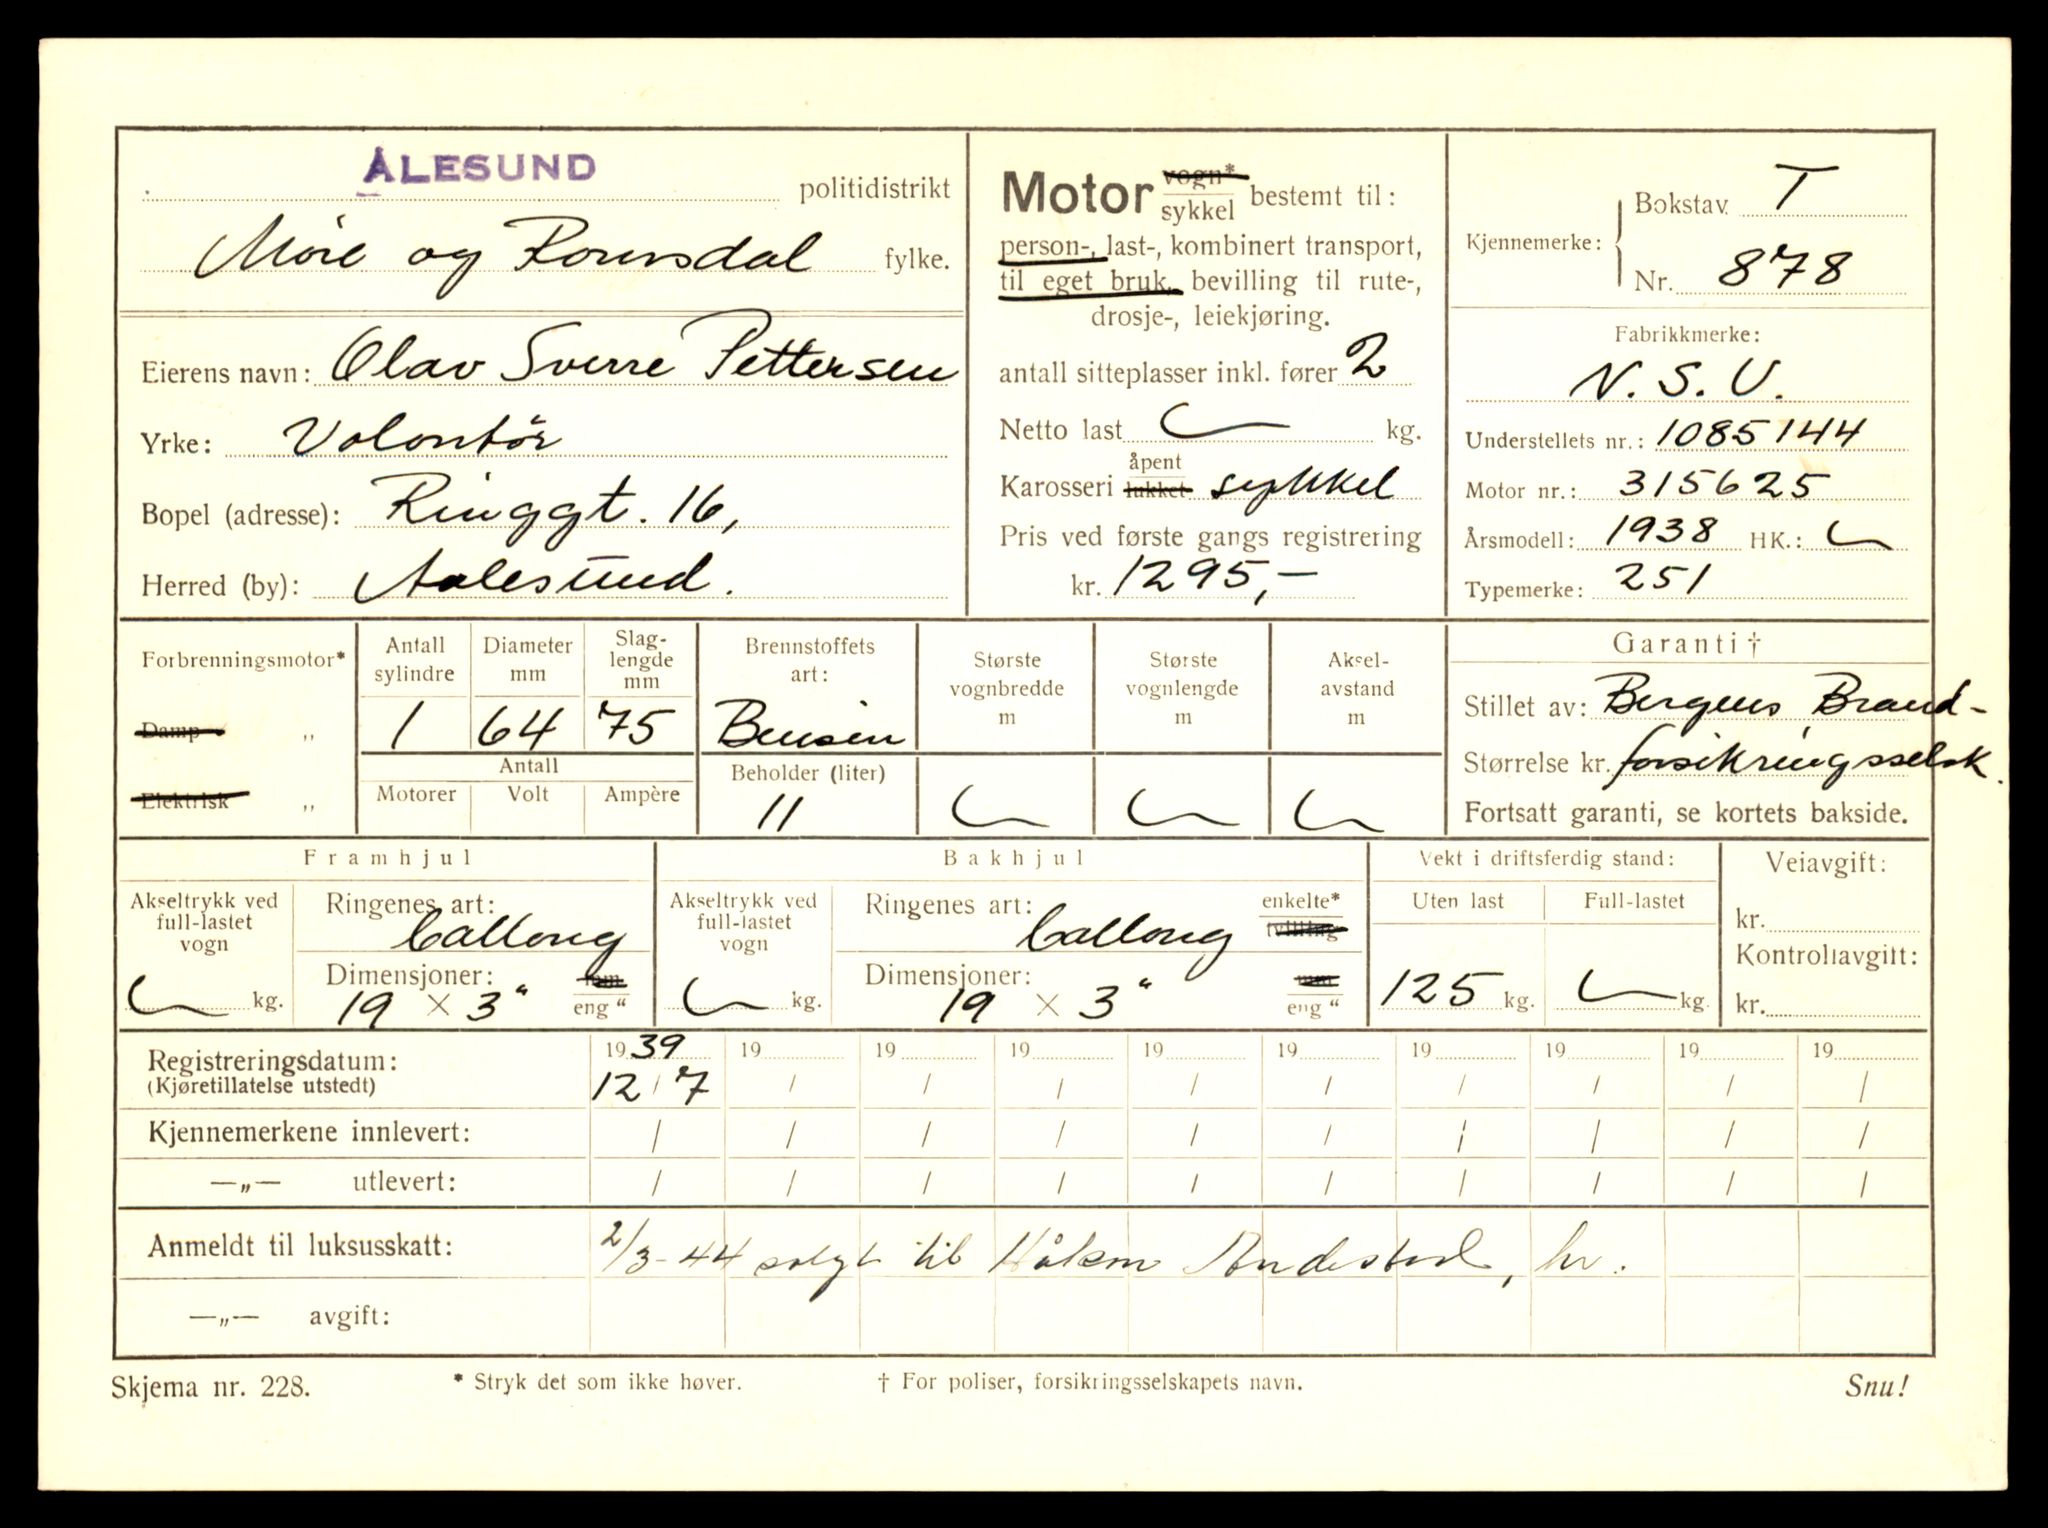 ÅLESUND politidistrikt
Møre og Romsdal fylke.
Eierens navn: Olav Sverre Pettersen
Yrke: Volontør
Bopel (adresse): Ringgt. 16,
Herred (by): Aalesund.
Motor vogn* sykkel bestemt til:
person-, last-, kombinert transport,
til eget bruk, bevilling til rute-,
drosje-, leiekjøring.
antall sitteplasser inkl. fører 2
Netto last kg.
Karosseri åpent lukket sykkel
Pris ved første gangs registrering
kr. 1295,-
Kjennemerke: Bokstav T
Nr. 878
Fabrikkmerke:
N.S.U.
Understellets nr.: 1085144
Motor nr.: 315625
Årsmodell: 1938 HK.:
Typemerke: 251
Forbrenningsmotor*
Damp „
Elektrisk „
Antall sylindre
1
Diameter mm
64
Slag-
lengde
mm
75
Antall
Motorer Volt Ampère
Brennstoffets
art:
Bensin
Beholder (liter)
11
Største
vognbredde
m
Største
vognlengde
m
Aksel-
avstand
m
Garanti †
Stillet av: Bergens Brand-
Størrelse kr. forsikringsselsk.
Fortsatt garanti, se kortets bakside.
Framhjul
Akseltrykk ved
full-lastet
vogn
kg.
Ringenes art:
Ballong
Dimensjoner: mm
19 × 3" eng "
Bakhjul
Akseltrykk ved
full-lastet
vogn
kg.
Ringenes art: enkelte*
Ballong tvilling
Dimensjoner: mm
19 × 3" eng "
Vekt i driftsferdig stand:
Uten last Full-lastet
125 kg. kg.
Veiavgift:
kr.
Kontrollavgift:
kr.
Registreringsdatum: 1939 19 19 19 19 19 19 19 19 19
(Kjøretillatelse utstedt) 12 / 7 / / / / / / / / /
Kjennemerkene innlevert: / / / / / / / / / /
—„— utlevert: / / / / / / / / / /
Anmeldt til luksusskatt: 2/3-44 solgt til Håkon Andestad, hr.
—„— avgift:
Skjema nr. 228. * Stryk det som ikke høver. † For poliser, forsikringsselskapets navn. Snu!